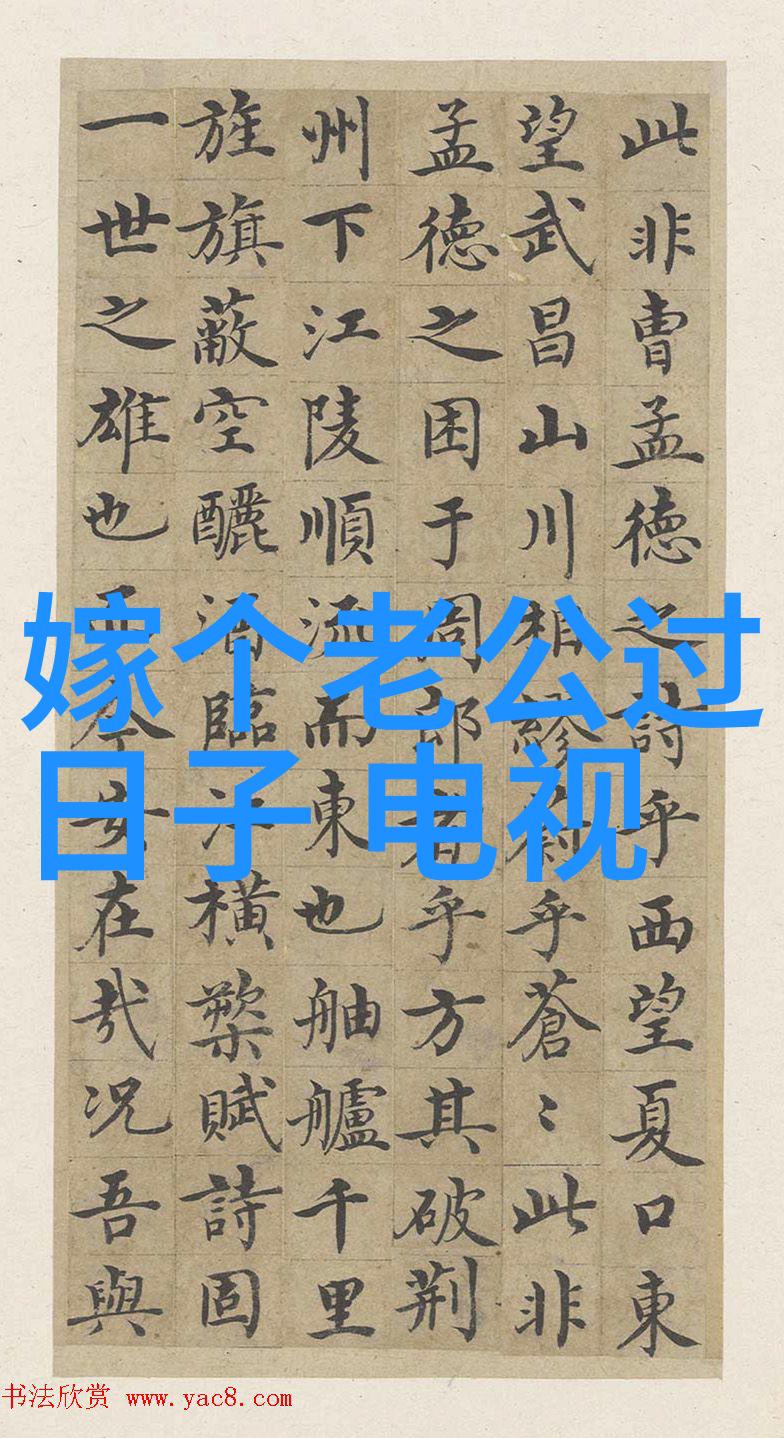 此非曹孟徳之詩乎西望夏口東
望武昌山川相繆乎蒼〻此非
孟徳之困于周郎者乎方其破荆
州下江陵順流而東也舳艫千里
旌旗蔽空釃酒臨江横槊賦詩固
一世之雄也而今安在哉况吾與
嫁个老公过
日子 电视
书法欣赏 www.yac8.com